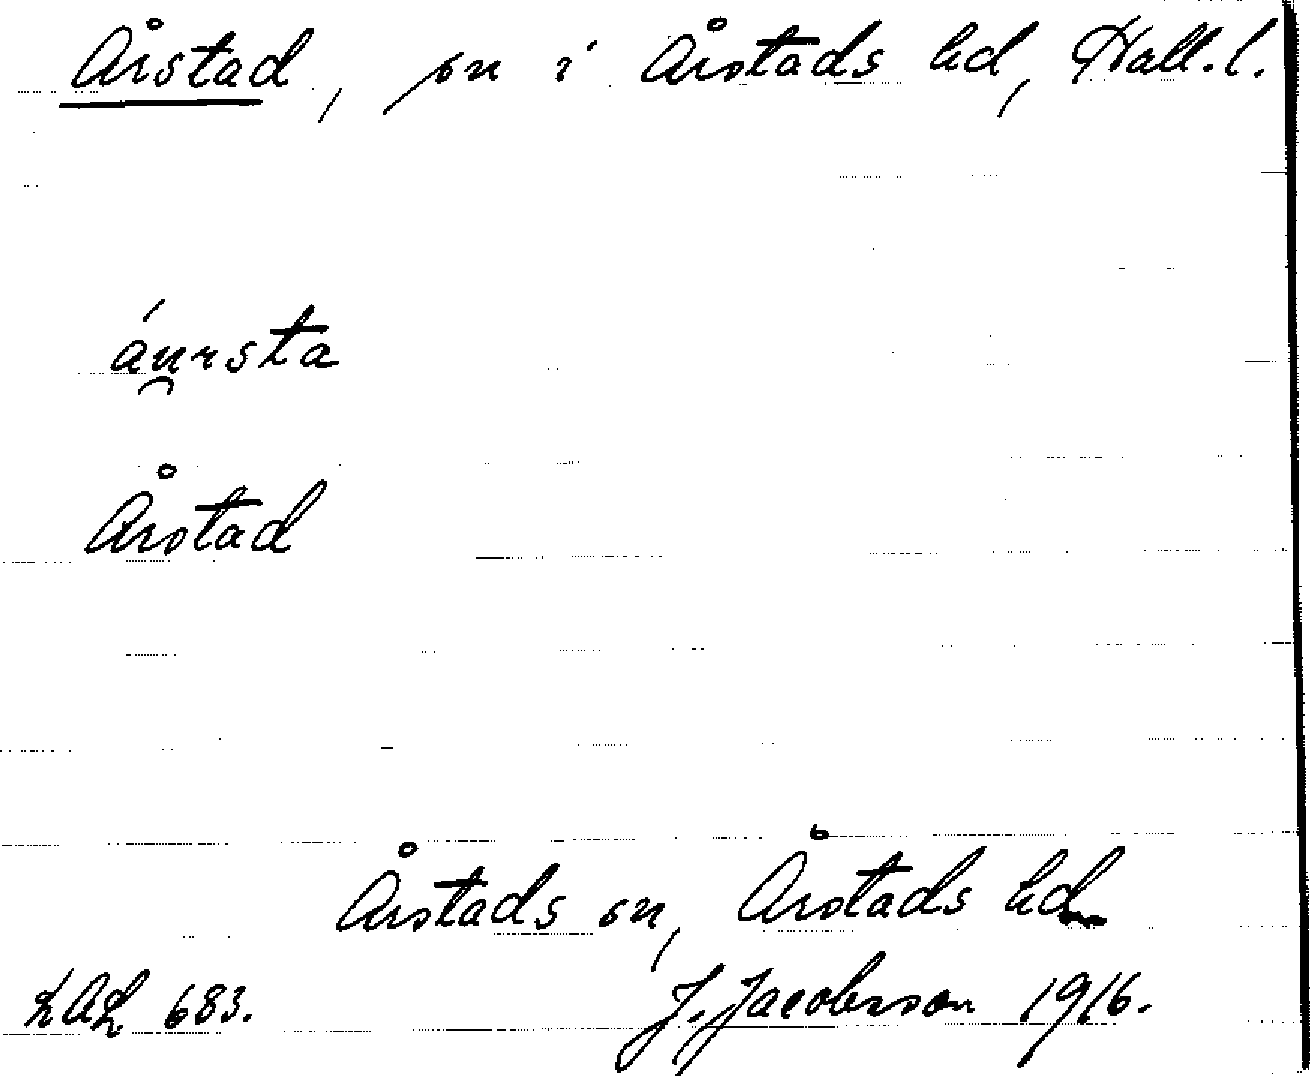 Årstad, sn i Årstads hd, Hall. l.
áu̯rsta
Årstad
Årstads sn, Årstads hd
LAL 683. J. Jacobsson 1916.